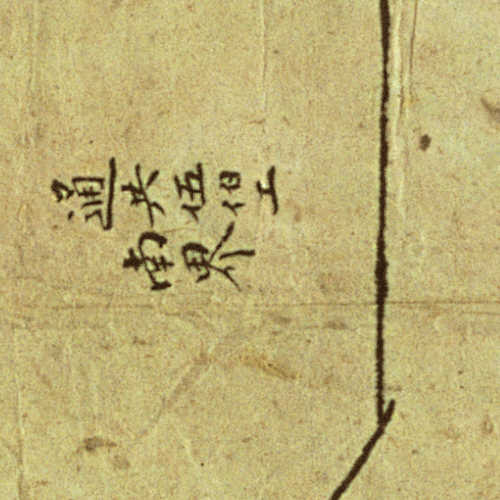 通共伍伯工
南界